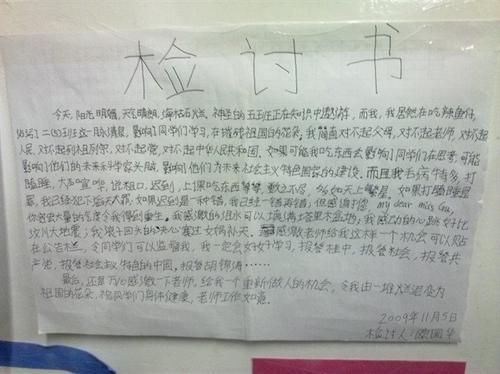 检讨书
今天,阳光明媚,天气晴朗,海枯石烂,神圣的五五班正在知识中遨游,而我,我居然在吃辣鱼仔,
班这一脉清泉,影响了同学们学习,在摧残祖国的花朵,我简直对不起父母,对不起老师,对不起
人民,对不起列祖列宗,对不起党,对不起中华人民共和国,如果可能我吃东西会影响了同学们在思考,可能
影响了他们的未来科学家头脑,影响了他们为未来社会主义特色国家的建设,而且我毛病特多,打
瞌睡,大声喧哗,说粗口,迟到,上课吃东西等等,数之不尽,多如天上繁星,如果打瞌睡是
罪,我已经犯下滔天大罪,如果迟到是一种错,我已经一错再错,但感谢有您,my dear miss Gu,
你宽宏大量的气度令我得到重生,我感激的泪水可以填满塔里木盆地,我感动的心跳好比
汶川大地震,我浪子回头的决心塞过女娲补天,感激老师给我这样一个机会可以贴
在公告栏,令同学们可以监督我,我一定会好好学习,报答社会,报答共
产党,报答社会主义特色的中国,报答胡锦涛……
最后,还是万分感激一下老师,给我一个重新做人的机会,令我由一堆烂泥变为
祖国的花朵,祝同学们身体健康,老师工作如意。
2009年11月5日
检讨人: